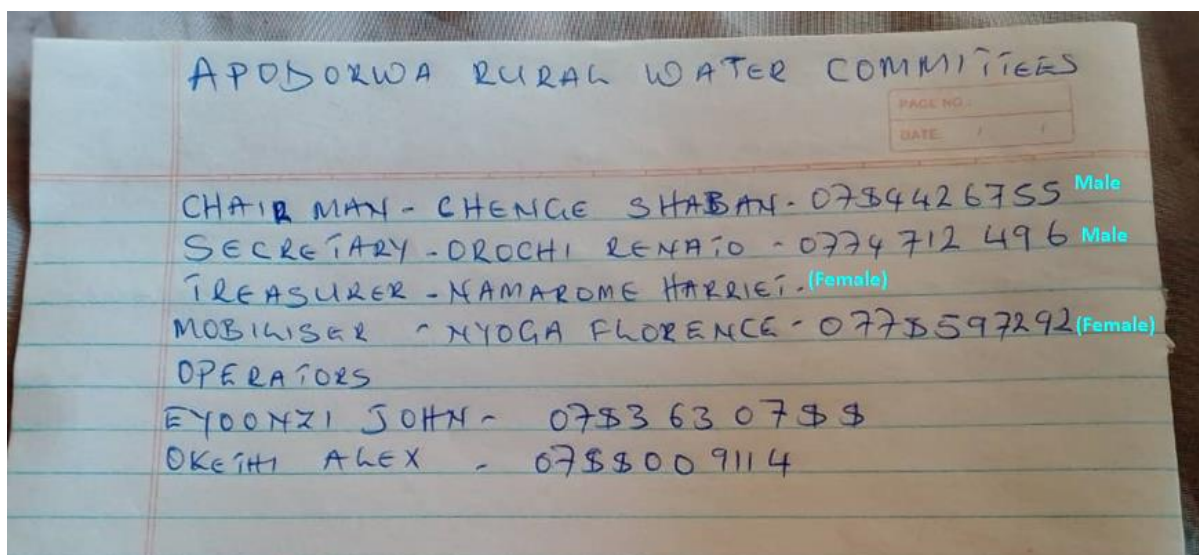 APODORWA RURAL WATER COMMITTEES
PAGE NO.:
DATE: / /
CHAIR MAN - CHENGE SHABAN - 0784426755 Male
SECRETARY - OROCHI RENATO - 0774 712 496 Male
TREASURER - NAMAROME HARRIET. (Female)
MOBILISER - NYOGA FLORENCE - 0778597292 (Female)
OPERATORS
EYOONZI JOHN - 0783 630788
OKETHI ALEX - 0788009114